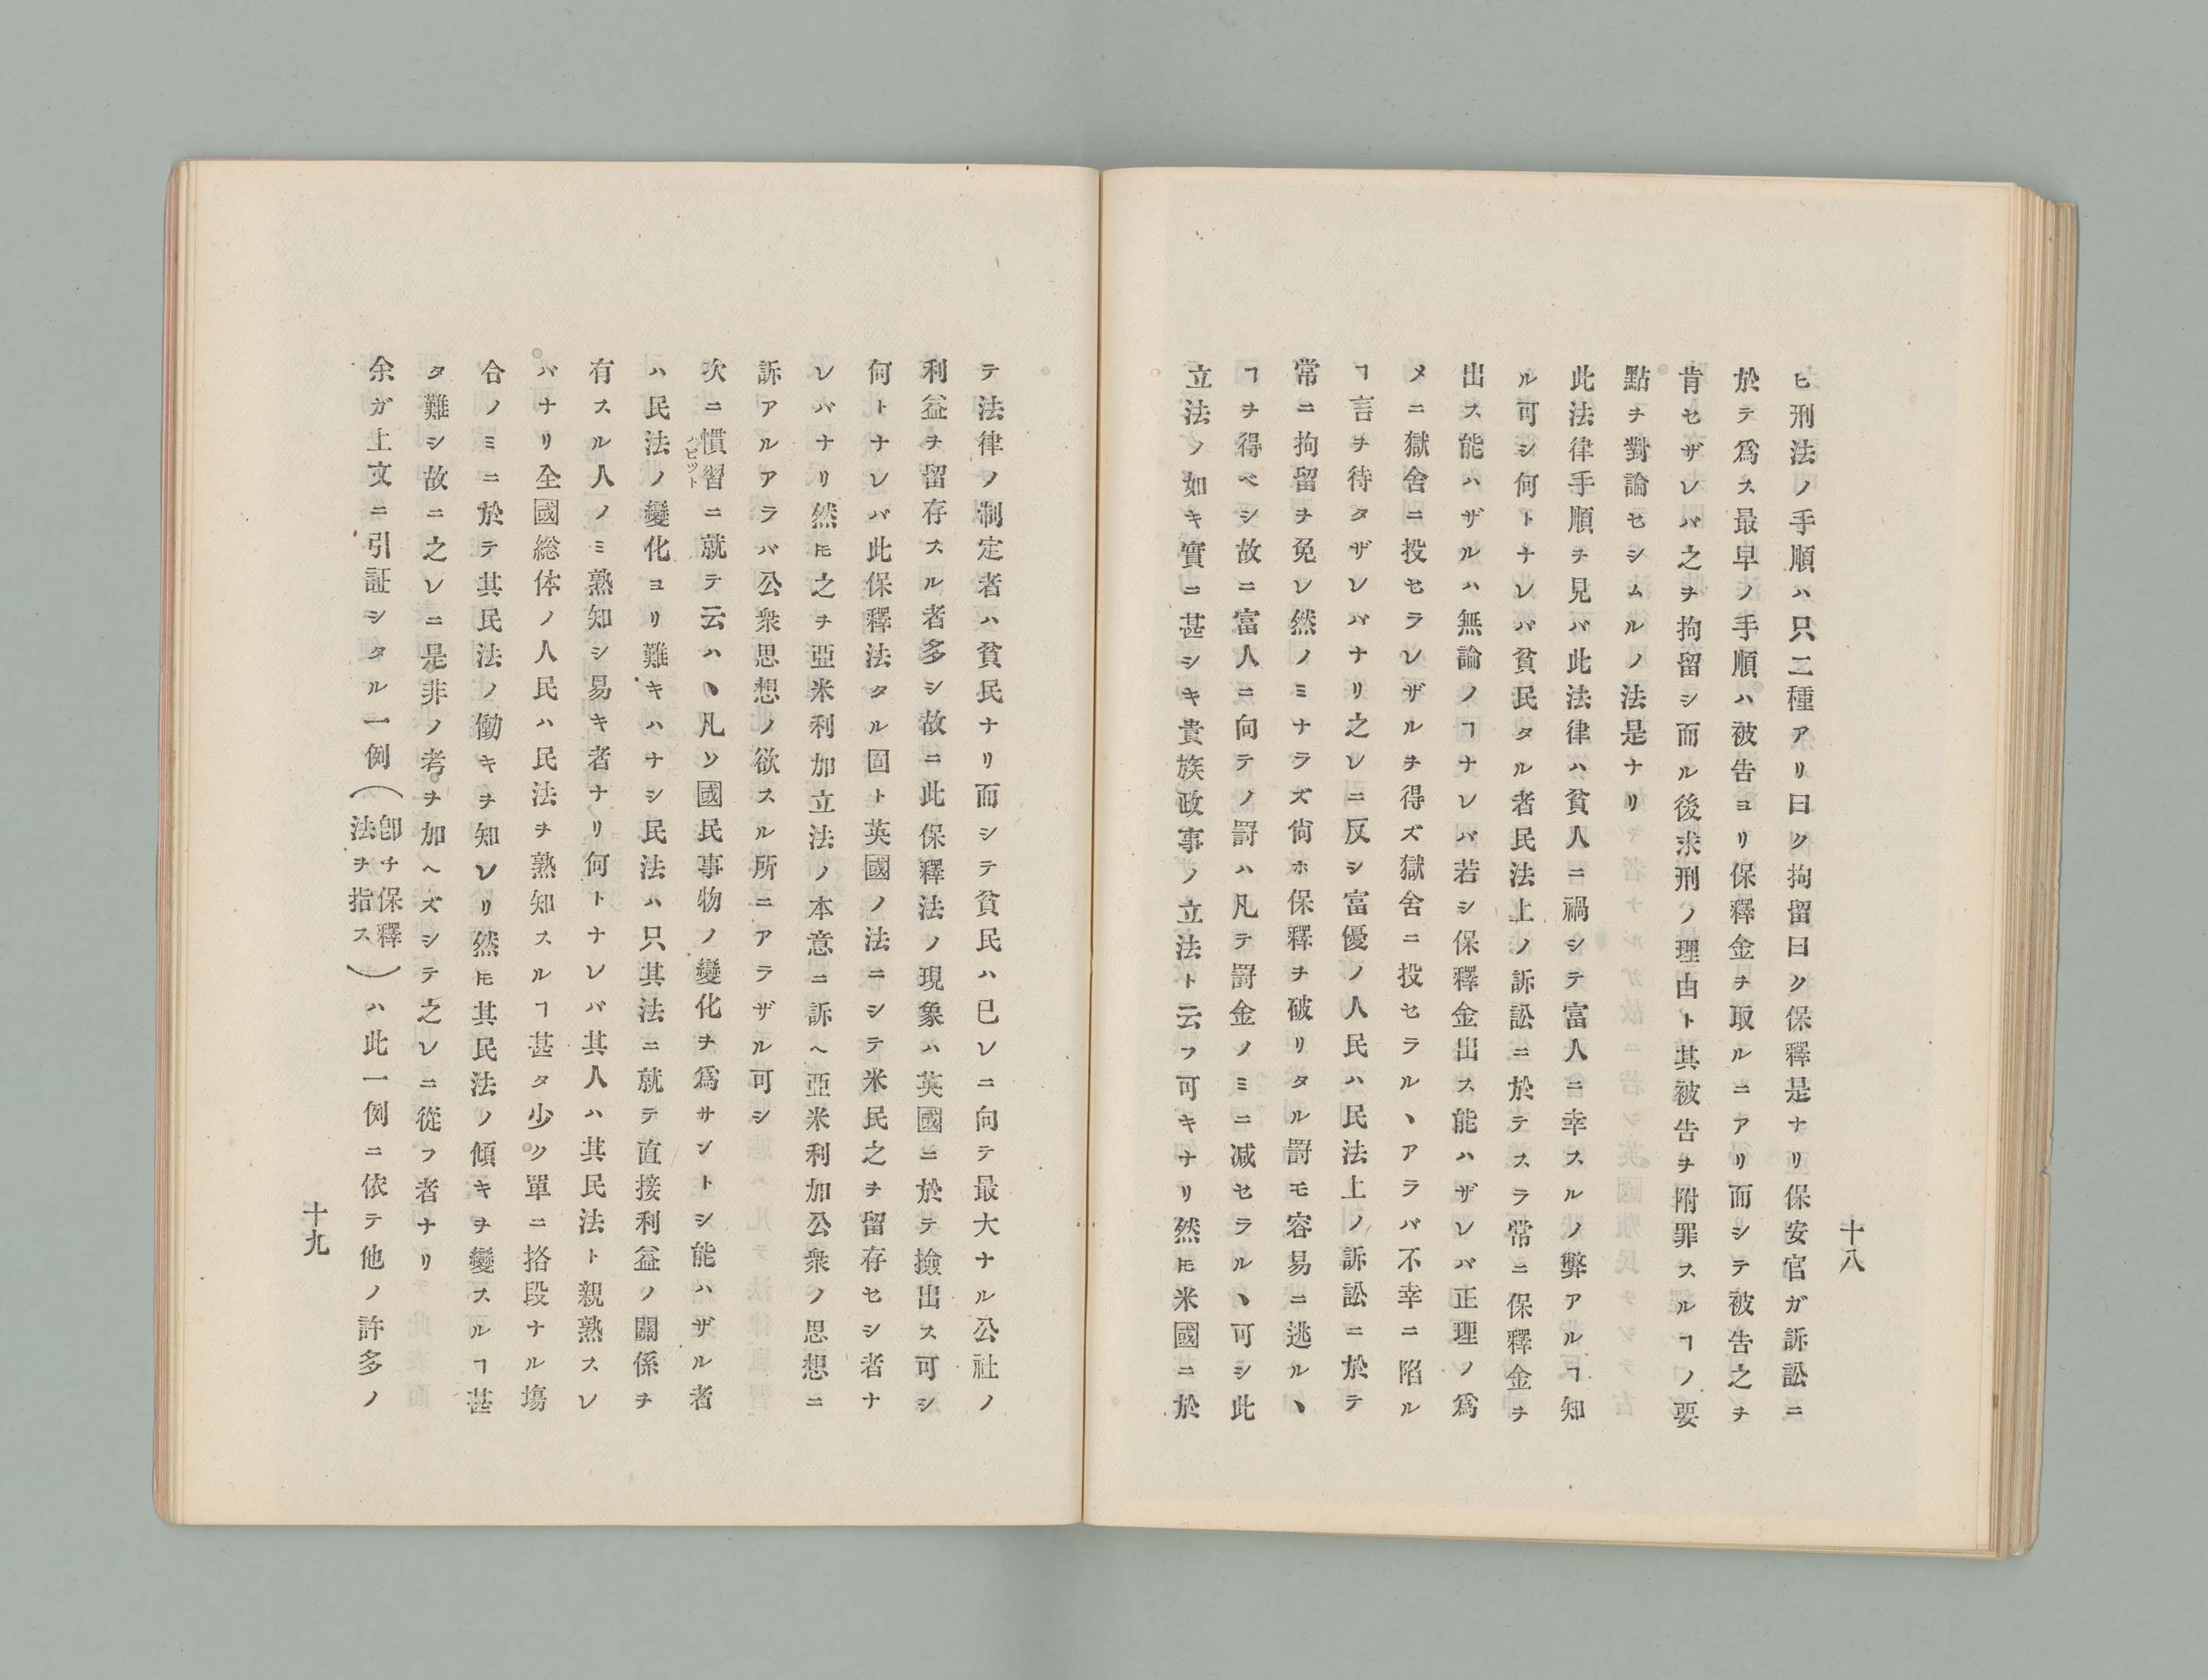 十八
ヒ刑法ノ手順ハ只二種アリ曰ク拘留曰ク保釋是ナリ保安官ガ訴訟ニ
於テ爲ス最早ノ手順ハ被告ヨリ保釋金ヲ取ルニアリ而シテ被告之ヲ
肯セザレバ之ヲ拘留シ而ル後求刑ノ理由ト其被告ヲ附罪スルヿノ要
點ヲ對論セシムルノ法是ナリ
此法律手順ヲ見バ此法律ハ貧人ニ禍シテ富人ニ幸スルノ弊アルヿ知
ル可シ何トナレバ貧民タル者民法上ノ訴訟ニ於テスラ常ニ保釋金ヲ
出ス能ハザルハ無論ノヿナレバ若シ保釋金出ス能ハザレバ正理ノ爲
メニ獄舍ニ投セラレザルヲ得ズ獄舍ニ投セラルヽアラバ不幸ニ陷ル
ヿ言ヲ待タザレバナリ之レニ反シ富優ノ人民ハ民法上ノ訴訟ニ於テ
常ニ拘留ヲ免レ然ノミナラズ尙ホ保釋ヲ破リタル罰モ容易ニ逃ルヽ
ヿヲ得ベシ故ニ富人ニ向テノ罰ハ凡テ罰金ノミニ减セラルヽ可シ此
立法ノ如キ實ニ甚シキ貴族政事ノ立法ト云フ可キナリ然𪜈米國ニ於
テ法律ノ制定者ハ貧民ナリ而シテ貧民ハ已レニ向テ最大ナル公社ノ
利益ヲ留存スル者多シ故ニ此保釋法ノ現象ハ英國ニ於テ撿出ス可シ
何トナレバ此保釋法タル固ト英國ノ法ニシテ米民之ヲ留存セシ者ナ
レバナリ然𪜈之ヲ亞米利加立法ノ本意ニ訴ヘ亞米利加公衆ノ思想ニ
訴アルアラバ公衆思想ノ欲スル所ニアラザル可シ
次ニ慣習ニ就テ云ハヽ凡ソ國民事物ノ變化ヲ爲サントシ能ハザル者
ハビツト
ハ民法ノ變化ヨリ難キハナシ民法ハ只其法ニ就テ直接利益ノ關係ヲ
有スル人ノミ熟知シ易キ者ナリ何トナレバ其人ハ其民法ト親熟スレ
バナリ全國総体ノ人民ハ民法ヲ熟知スルヿ甚タ少ク單ニ挌段ナル塲
合ノミニ於テ其民法ノ働キヲ知レリ然𪜈其民法ノ傾キヲ變スルヿ甚
タ難シ故ニ之レニ是非ノ考ヲ加ヘズシテ之レニ從フ者ナリ
余ガ上文ニ引証シタル一例(卽チ保釋法ヲ指ス)ハ此一例ニ依テ他ノ許多ノ
十九